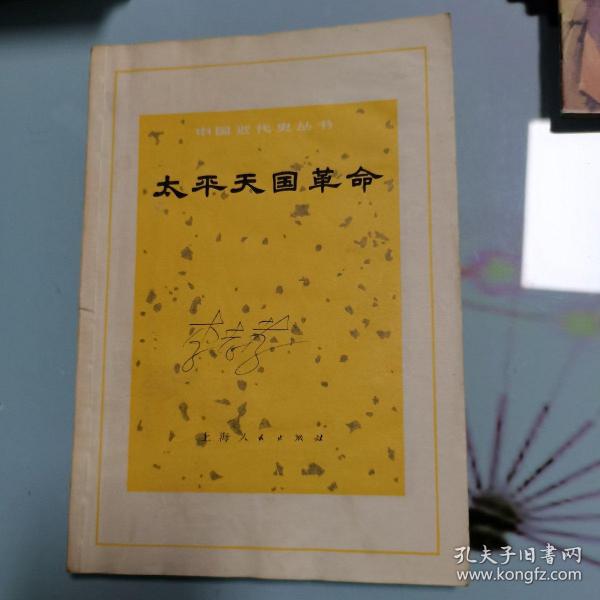 中国近代史丛书
太平天国革命
上海人民出版社
孔夫子旧书网
www.kongfz.com